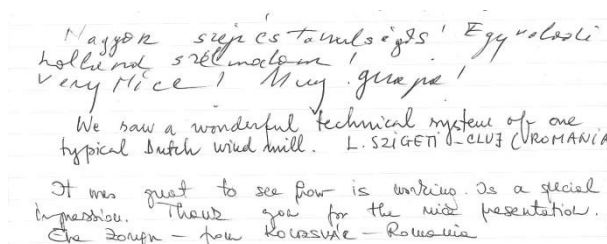 Nagyon szép és tanulságos! Egy valódi
holland szélmalom!
Very Nice! Muy guapa!
We saw a wonderful technical system of one
typical Dutch wind mill. L. SZIGETI - CLUJ (ROMANIA
It was great to see how is working. Is a special
impression. Thank you for the nice presentation.
Eva - from - Romania